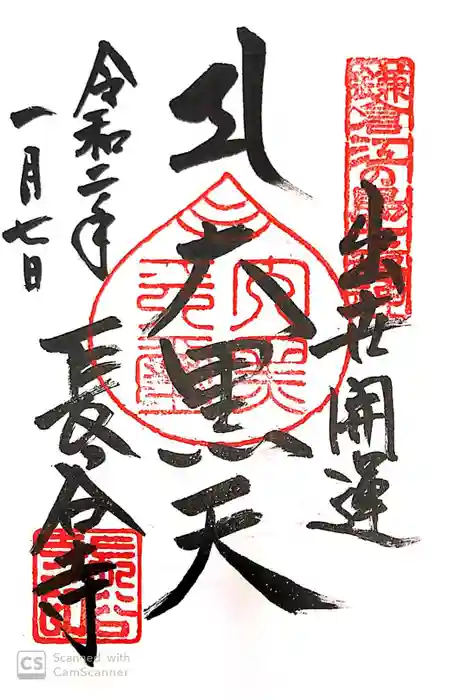 鎌倉江の島
出世開運
大黒天
令和二年
一月七日
長谷寺
CS Scanned with
CamScanner